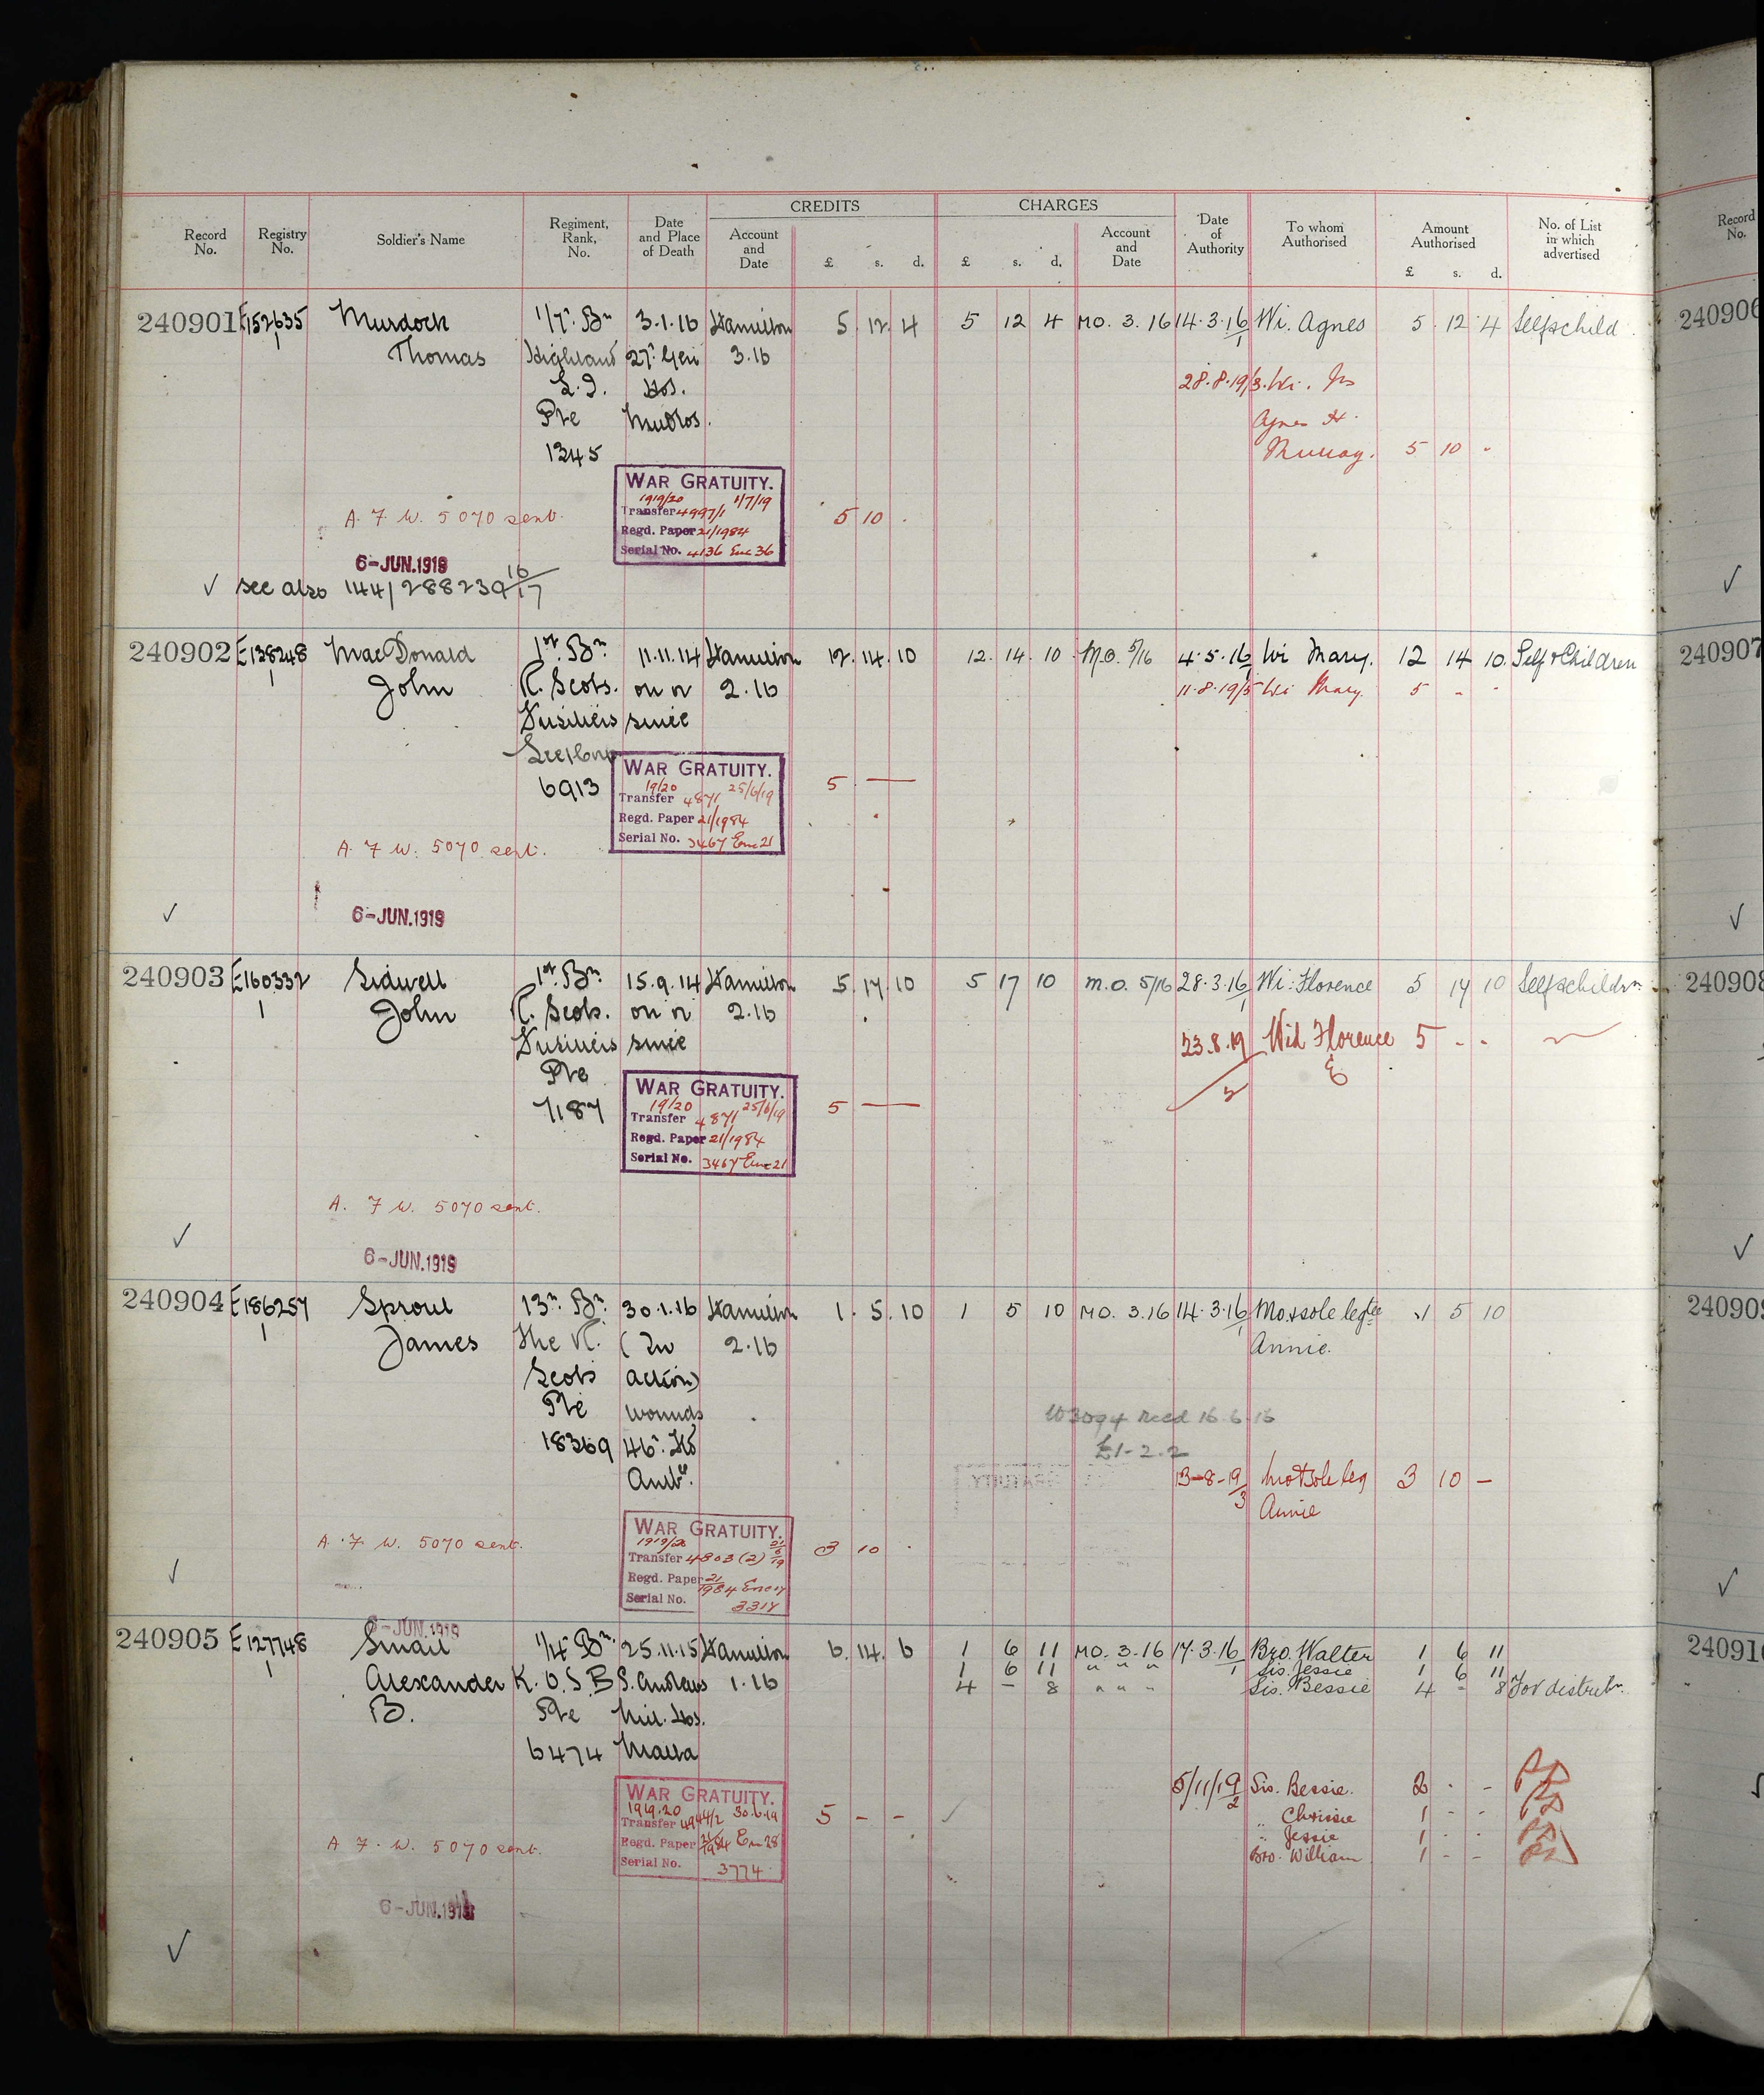 CREDITS CHARGES
Record No. Registry No. Soldier's Name Regiment, Rank, No. Date and Place of Death Account and Date £ s. d. £ s. d. Account and Date Date of Authority To whom Authorised Amount Authorised £ s. d. No. of List in which advertised Record No.
240901 E152635 Murdoch 1/7th Bn 3.1.16 Hamilton 5 . 12 . 4 5 12 4 MO. 3. 16 14.3.16 Wi. Agnes 5 . 12 . 4 Self & child 240906
1 Thomas Highland 27th Gen 3.16 1
L.I. Hos. 28.8.19/3 Wi.
Pte Mudros. Agnes H.
1345 5 10 -
WAR GRATUITY.
1919/20 1/7/19
Transfer 4997/1
A. F. W. 5070 sent. 5 10 .
Regd. Paper 21/1984
Serial No. 4136 Enc 36
6-JUN.1919
✓ see also 144/288239 16/17
240902 E138248 MacDonald 1st Bn 11.11.14 Hamilton 12 . 14 . 10 12. 14. 10 M.O. 5/16 4.5.16 Wi Mary. 12 14 10. Self & Children 240907
1 John R. Scots. on or 2.16 11.8.19/5 Wi Mary. 5 - -
Fusiliers since
6913
WAR GRATUITY.
19/20 25/6/19
Transfer 4871
5 —
Regd. Paper 21/1984
Serial No. 3467 Enc 21
A. F. W. 5070 sent.
✓ 6-JUN.1919
240903 E160332 Sidwell 1st Bn 15.9.14 Hamilton 5 . 17 . 10 5 17 10 M.O. 5/16 28.3.16 Wi: Florence 5 17 10 Self & childrn. 240908
1 John R. Scots. on or 2.16 1
Fusiliers since 23.8.19 Wid Florence 5 - -
Pte E
7187
WAR GRATUITY.
19/20 25/6/19
Transfer 4871
5 —
Regd. Paper 21/1984
Serial No. 3467 Enc 21
A. F. W. 5070 sent.
✓ 6-JUN.1919
240904 E186257 Sproul 13th Bn 30.1.16 Hamilton 1 . 5 . 10 1 5 10 MO. 3.16 14.3.16 Mo. & sole legtee 1 5 10 240909
1 James The R. (In 2.16 1 Annie.
Scots action)
Pte wounds
W3094 recd 16.6.16
18369 46th Fd £1-2.2
Ambce. 13-8-19/3 Mo & Sole leg 3 10 -
Annie
WAR GRATUITY.
1919/20 21/6/19
A. F. W. 5070 sent. Transfer 4803 (2) 3 10 .
Regd. Paper 21/1984 Enc 17
Serial No. 3317
6-JUN.1919
240905 E127748 Smail 1/4th Bn. 25.11.15 Hamilton 6. 14. 6 1 6 11 MO. 3.16 17.3.16 Bro. Walter 1 6 11 240910
1 1 6 11 " " " 1 Sis. Jessie 1 6 11
Alexander K.O.S.B. S. Andrews 1.16 4 - 8 " " " Sis. Bessie 4 - 8 For distribn.
B. Pte Mil. Hos.
6474 Malta
5/11/19/2 Sis. Bessie. 2 . -
WAR GRATUITY.
1919.20 30.6.19
Transfer 4944/2 5 - - " Chrissie 1 - -
Regd. Paper 21/1984 Enc 28 " Jessie 1 - -
Serial No. 3774 Bro. William 1 - -
A. F. W. 5070 sent.
6-JUN.1919